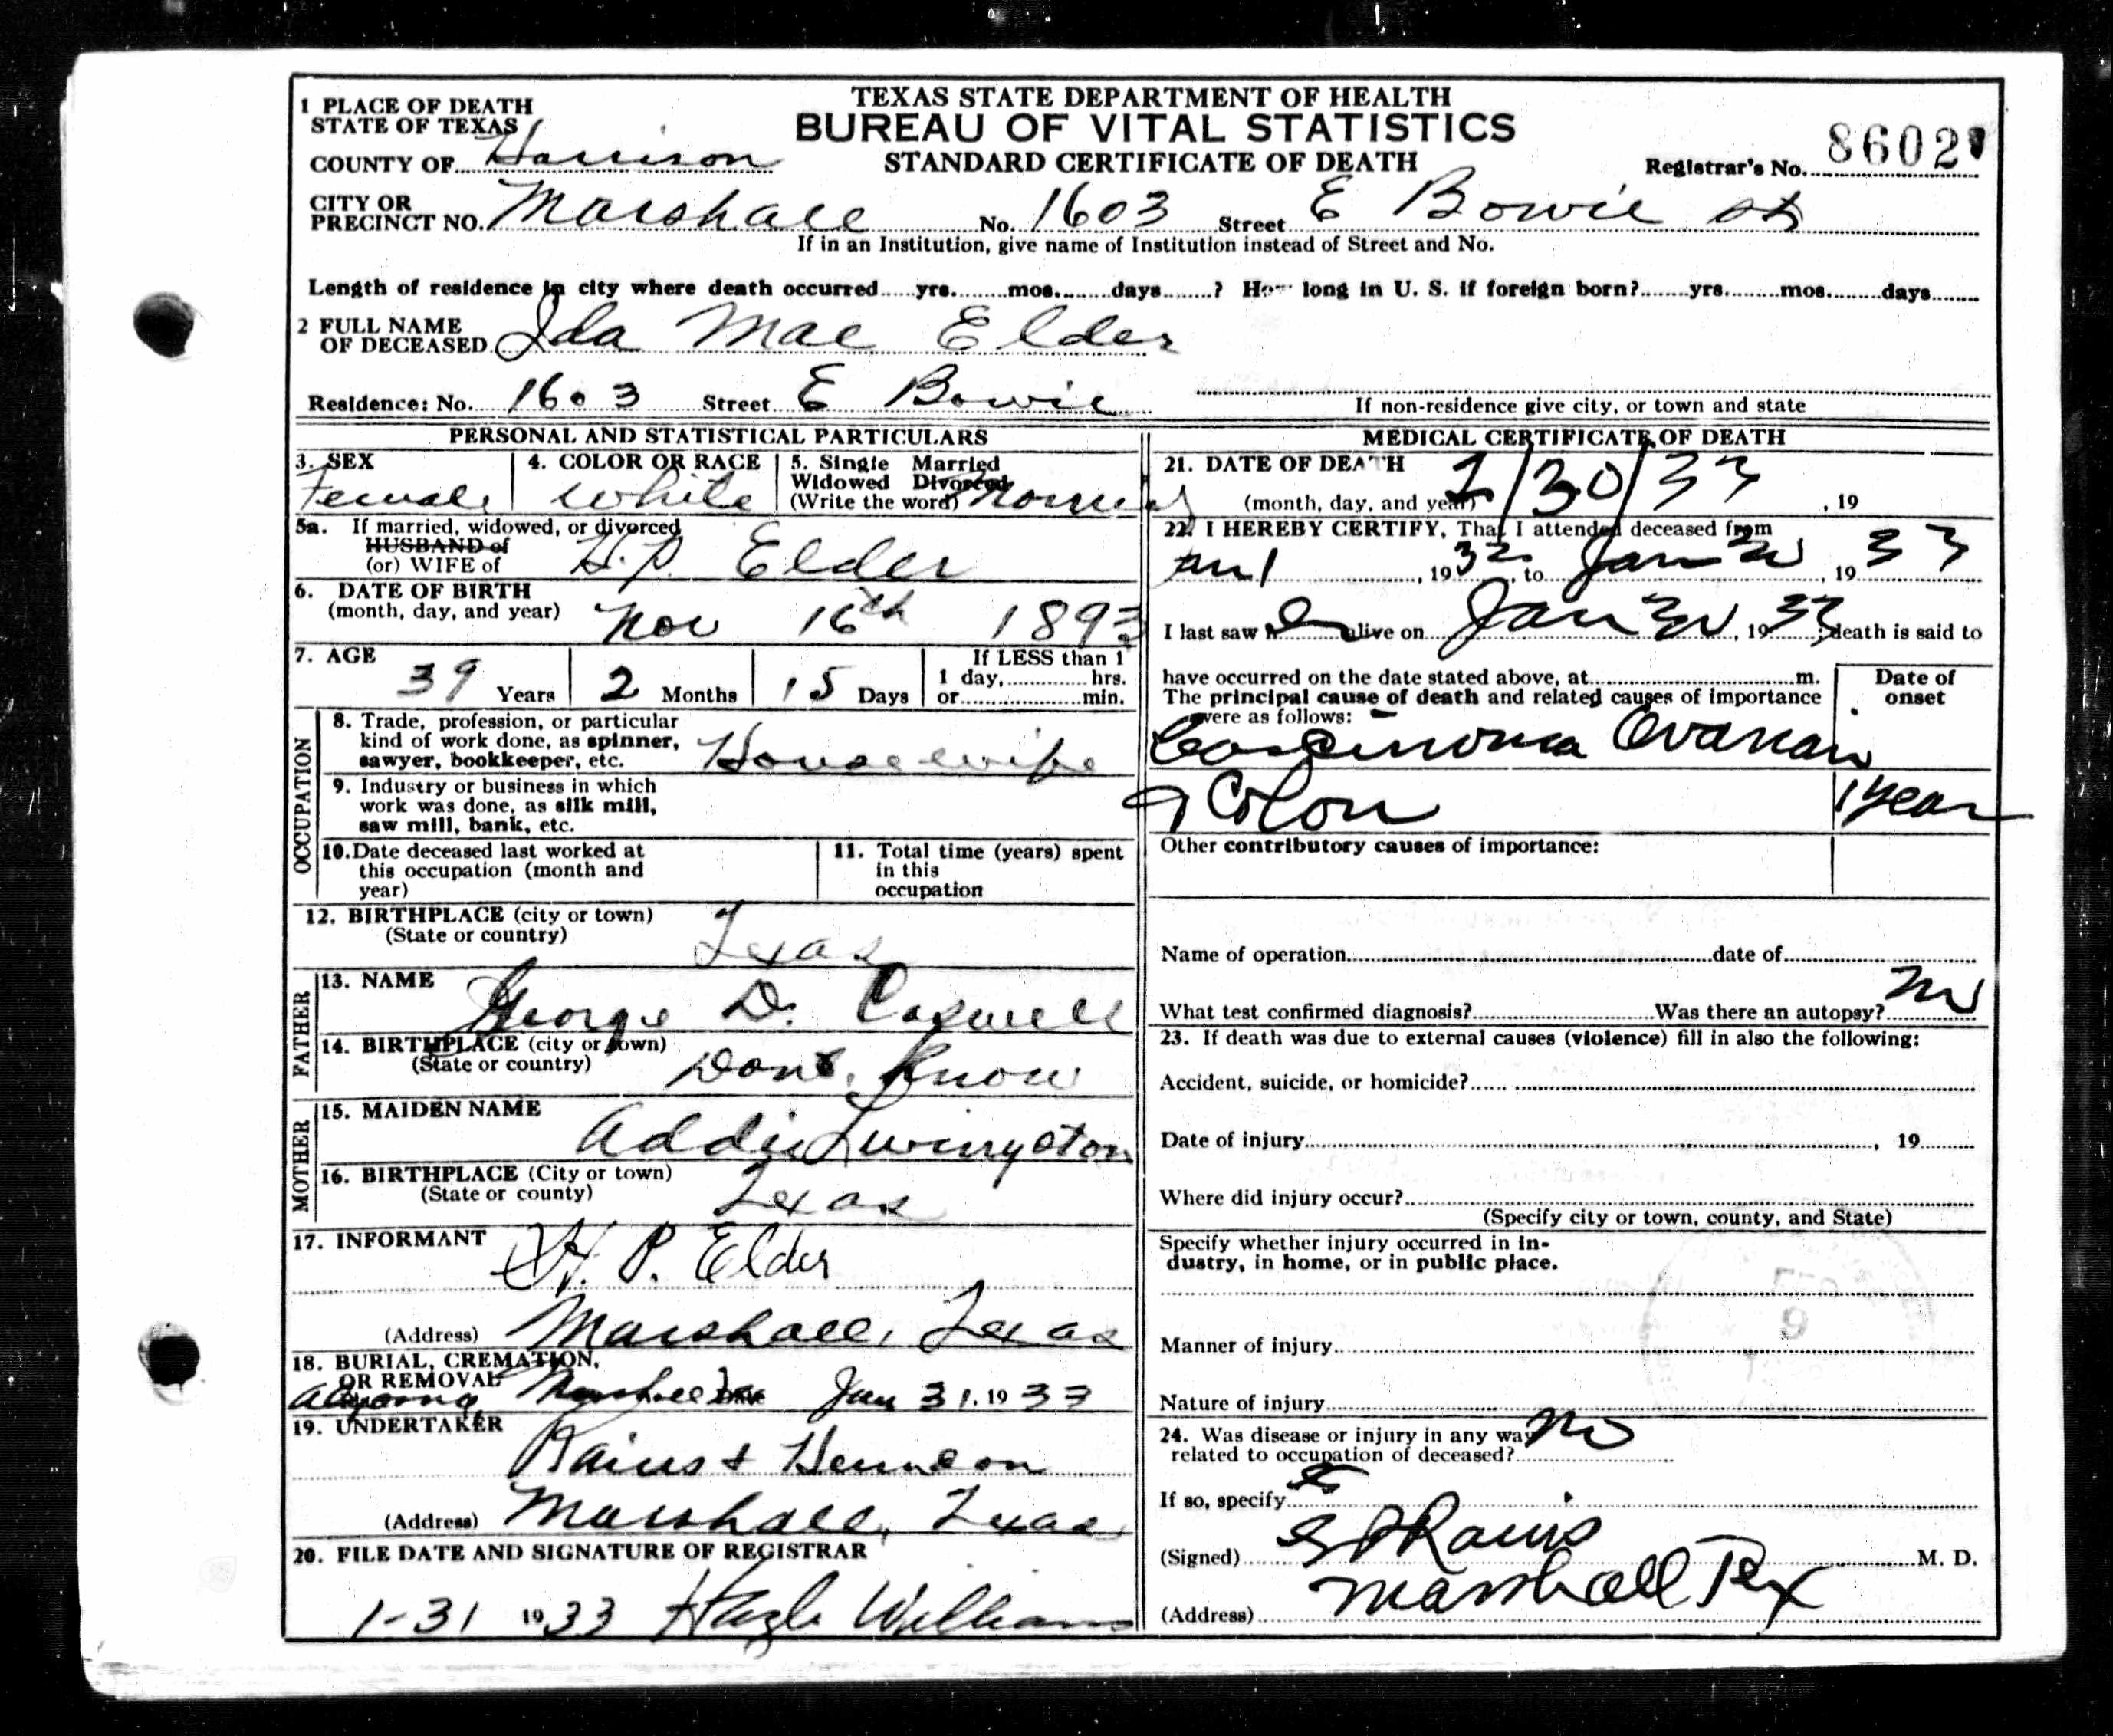 TEXAS STATE DEPARTMENT OF HEALTH
BUREAU OF VITAL STATISTICS
STANDARD CERTIFICATE OF DEATH
1 PLACE OF DEATH
STATE OF TEXAS
COUNTY OF Harrison
Registrar's No. 8602
CITY OR
PRECINCT NO. Marshall No. 1603 Street E Bowie St
If in an Institution, give name of Institution instead of Street and No.
Length of residence in city where death occurred yrs. mos. days ? How long in U. S. if foreign born? yrs. mos. days
2 FULL NAME
OF DECEASED Ida Mae Elder
Residence: No. 1603 Street E Bowie
If non-residence give city, or town and state
PERSONAL AND STATISTICAL PARTICULARS
3. SEX
Female
4. COLOR OR RACE
White
5. Single Married
Widowed Divorced
(Write the word)
5a. If married, widowed, or divorced
HUSBAND of
(or) WIFE of H.P. Elder
6. DATE OF BIRTH
(month, day, and year) Nov 16th 1893
7. AGE
39 Years 2 Months 15 Days
If LESS than 1
1 day, hrs.
or min.
OCCUPATION
8. Trade, profession, or particular
kind of work done, as spinner,
sawyer, bookkeeper, etc. Housewife
9. Industry or business in which
work was done, as silk mill,
saw mill, bank, etc.
10. Date deceased last worked at
this occupation (month and
year)
11. Total time (years) spent
in this
occupation
12. BIRTHPLACE (city or town)
(State or country) Texas
FATHER
13. NAME George D. Caswell
14. BIRTHPLACE (city or town)
(State or country) Dont Know
MOTHER
15. MAIDEN NAME
Addie Livingston
16. BIRTHPLACE (City or town)
(State or county) Texas
17. INFORMANT H. P. Elder
(Address) Marshall, Texas
18. BURIAL, CREMATION,
OR REMOVAL
Marshall Tex Jan 31. 1933
19. UNDERTAKER
Rains &
(Address) Marshall, Texas
20. FILE DATE AND SIGNATURE OF REGISTRAR
1-31 1933 Williams
MEDICAL CERTIFICATE OF DEATH
21. DATE OF DEATH
(month, day, and year) 1/30/33, 19
22. I HEREBY CERTIFY, That I attended deceased from
Jan 1, 1932, to Jan 30, 1933
I last saw her alive on Jan 30, 1933; death is said to
have occurred on the date stated above, at m.
The principal cause of death and related causes of importance
were as follows:
Date of
onset
Carcinoma Ovarian
& Colon 1 year
Other contributory causes of importance:
Name of operation date of
What test confirmed diagnosis? Was there an autopsy? no
23. If death was due to external causes (violence) fill in also the following:
Accident, suicide, or homicide?
Date of injury , 19
Where did injury occur?
(Specify city or town, county, and State)
Specify whether injury occurred in in-
dustry, in home, or in public place.
Manner of injury
Nature of injury
24. Was disease or injury in any way
related to occupation of deceased? no
If so, specify
(Signed) Rains M. D.
(Address) Marshall Tex